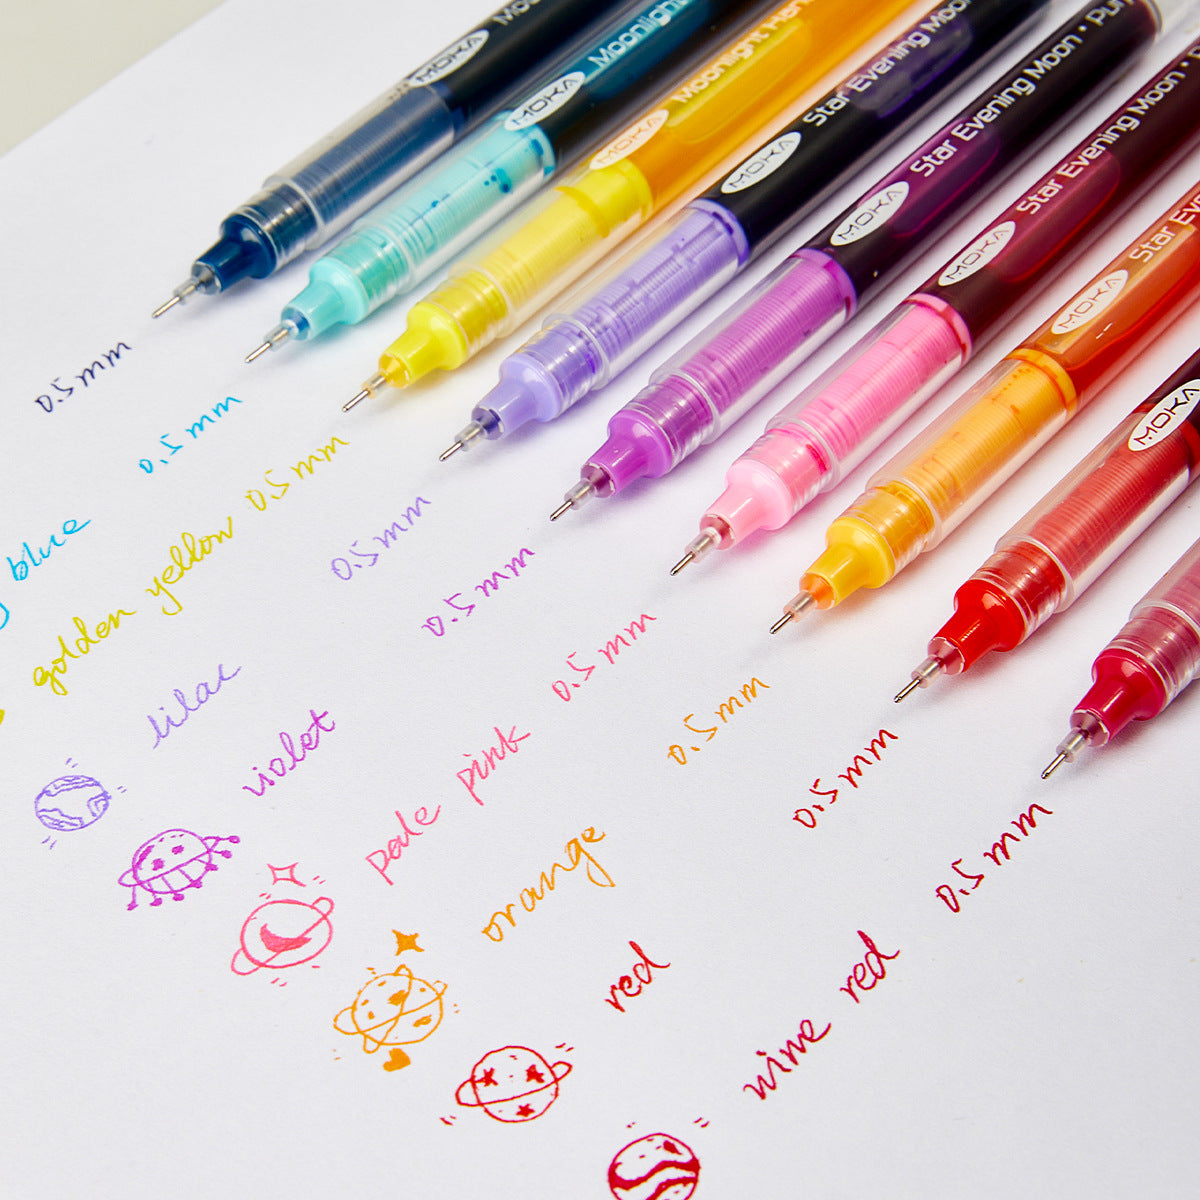 MOKA
MOKA Moonlight
MOKA Moonlight
MOKA Star Evening Moon
MOKA Star Evening Moon • Pur
MOKA Star Evening Moon •
MOKA Star
MOKA
0.5mm
blue 0.5mm
golden yellow 0.5mm
lilac 0.5mm
violet 0.5mm
pale pink 0.5mm
orange 0.5mm
red 0.5mm
wine red 0.5mm